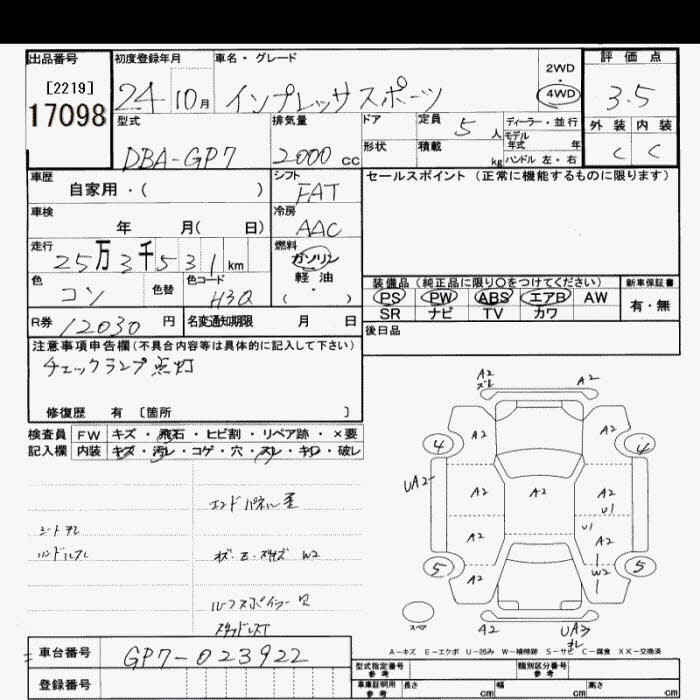 出品番号 初度登録年月 車名・グレード 2WD 評価点
[2219] 24 10月 インプレッサスポーツ 4WD 3.5
17098
型式 排気量 ドア 定員 5人 ディーラー・並行 外装 内装
DBA-GP7 2000cc 形状 積載 kg モデル年式 年 C C
ハンドル 左・右
車歴 シフト セールスポイント(正常に機能するものに限ります)
自家用・( ) FAT
車検 冷房
年 月( 日) AAC
走行 燃料
25万3千531km ガソリン
色 色替 色コード 軽油
コン H3Q ( )
装備品(純正品に限り○をつけてください) 新車保証書
PS PW ABS エアB AW 有・無
SR ナビ TV カワ
R券 12030円 名変通知期限 月 日 後日品
注意事項申告欄(不具合内容等は具体的に記入して下さい)
チェックランプ点灯
修復歴 有 〔箇所 〕
検査員 FW キズ・飛石・ヒビ割・リペア跡・×要
記入欄 内装 キズ・汚レ・コゲ・穴・スレ・キロ・破レ
エンドパネル歪
シートスレ
ハンドルスレ W2
ルーフスポイラー
スタッドレス
A2
ズレ A2
4 A2 A2 4
UA2
A2 A2 A2
U1
U1
A2 A2
5 A2 W2 5
スペア A2 UA3
A-キズ E-エクボ U-凹み W-補修跡 S-サビ C-腐食 XX-交換済
車台番号 GP7-023922
登録番号
型式指定番号 参考 類別区分番号 参考
車庫証明用 参考 長さ cm 幅 cm 高さ cm